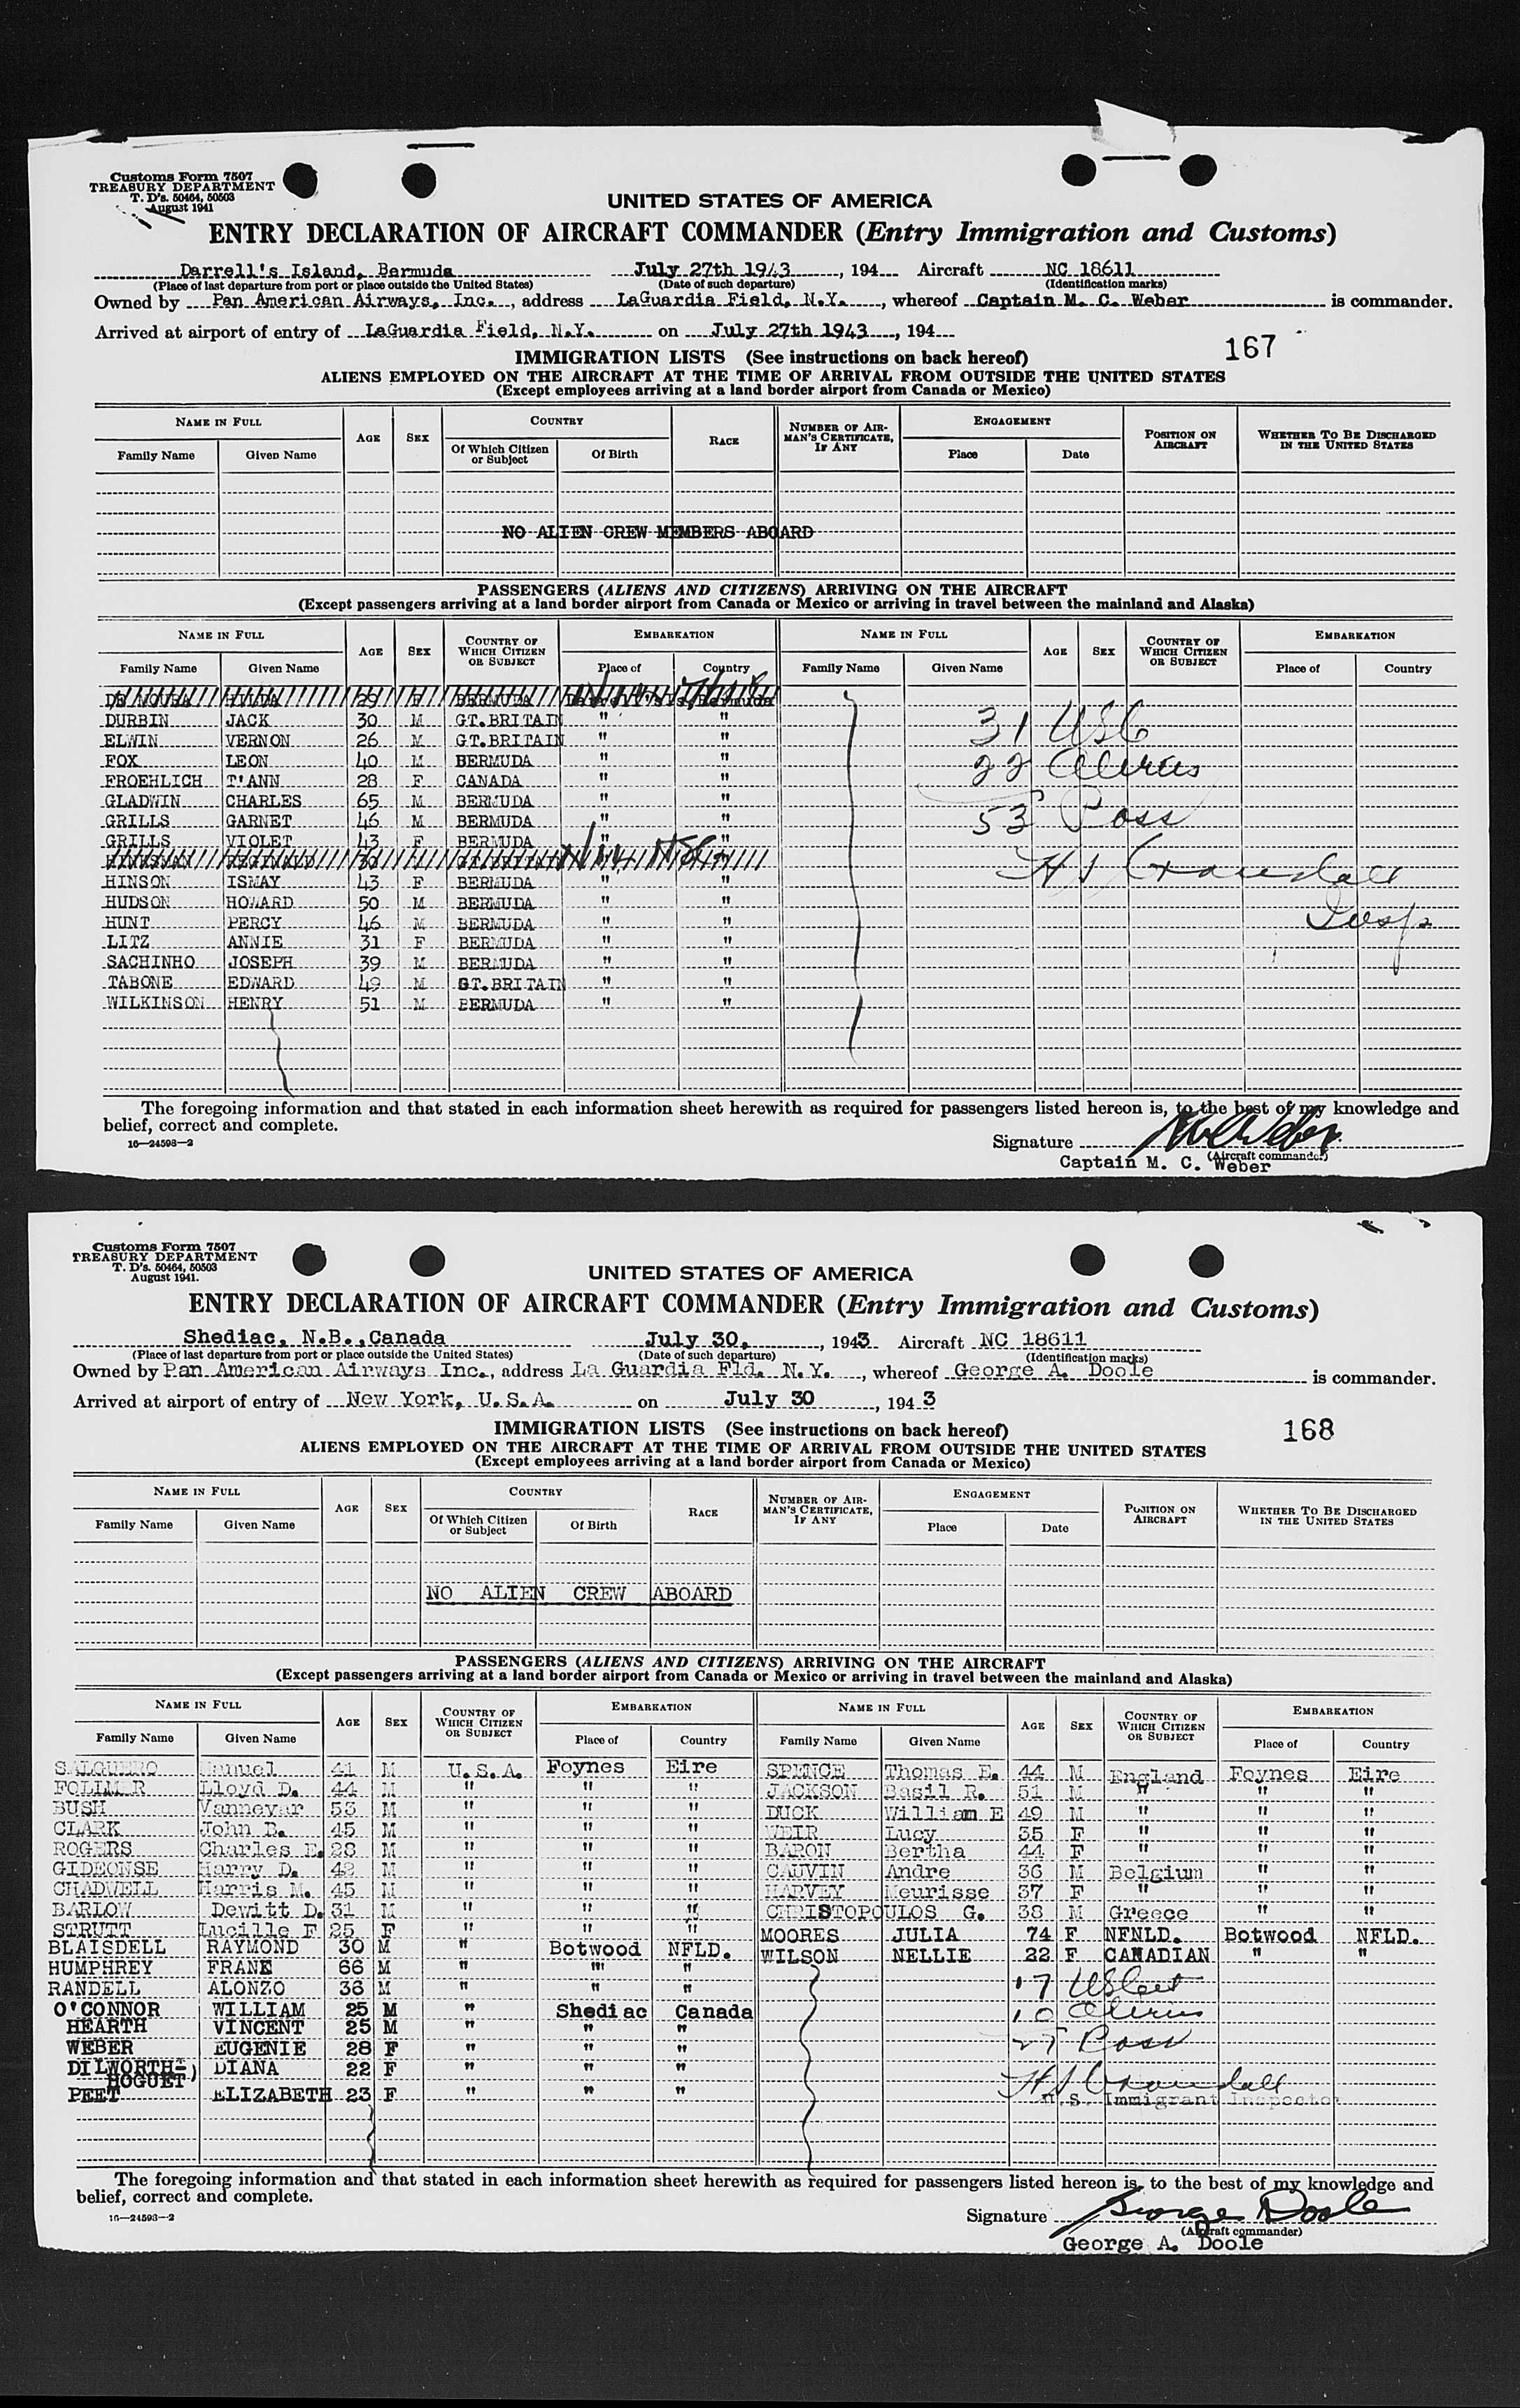 Customs Form 7507
TREASURY DEPARTMENT
T. D's. 50464, 50503
August 1941
UNITED STATES OF AMERICA
ENTRY DECLARATION OF AIRCRAFT COMMANDER (Entry Immigration and Customs)
Darrell's Island, Bermuda July 27th 1943, 194 Aircraft NC 18611
(Place of last departure from port or place outside the United States) (Date of such departure) (Identification marks)
Owned by Pan American Airways, Inc., address LaGuardia Field, N.Y., whereof Captain M. C. Weber is commander.
Arrived at airport of entry of LaGuardia Field, N.Y. on July 27th 1943, 194
167
IMMIGRATION LISTS (See instructions on back hereof)
ALIENS EMPLOYED ON THE AIRCRAFT AT THE TIME OF ARRIVAL FROM OUTSIDE THE UNITED STATES
(Except employees arriving at a land border airport from Canada or Mexico)
NAME IN FULL AGE SEX COUNTRY RACE NUMBER OF AIRMAN'S CERTIFICATE, IF ANY ENGAGEMENT POSITION ON AIRCRAFT WHETHER TO BE DISCHARGED IN THE UNITED STATES
Family Name Given Name Of Which Citizen or Subject Of Birth Place Date
NO ALIEN CREW MEMBERS ABOARD
PASSENGERS (ALIENS AND CITIZENS) ARRIVING ON THE AIRCRAFT
(Except passengers arriving at a land border airport from Canada or Mexico or arriving in travel between the mainland and Alaska)
NAME IN FULL AGE SEX COUNTRY OF WHICH CITIZEN OR SUBJECT EMBARKATION NAME IN FULL AGE SEX COUNTRY OF WHICH CITIZEN OR SUBJECT EMBARKATION
Family Name Given Name Place of Country Family Name Given Name Place of Country
29 F BERMUDA Bermuda
DURBIN JACK 30 M GT.BRITAIN " " 31 USC
ELWIN VERNON 26 M GT.BRITAIN " "
FOX LEON 40 M BERMUDA " " 22 Aliens
FROEHLICH T'ANN 28 F CANADA " "
GLADWIN CHARLES 65 M BERMUDA " "
GRILLS GARNET 46 M BERMUDA " " 53 Pass
GRILLS VIOLET 43 F BERMUDA " "
HINKSMAN REGINALD 30 GT.BRITAIN "
H S Crandall
HINSON ISMAY 43 F BERMUDA " "
HUDSON HOWARD 50 M BERMUDA " "
HUNT PERCY 46 M BERMUDA " " Insp
LITZ ANNIE 31 F BERMUDA " "
SACHINHO JOSEPH 39 M BERMUDA " "
TABONE EDWARD 49 M GT.BRITAIN " "
WILKINSON HENRY 51 M BERMUDA " "
The foregoing information and that stated in each information sheet herewith as required for passengers listed hereon is, to the best of my knowledge and
belief, correct and complete.
16—24593—2
Signature M C Weber
(Aircraft commander)
Captain M. C. Weber
Customs Form 7507
TREASURY DEPARTMENT
T. D's. 50464, 50503
August 1941.
UNITED STATES OF AMERICA
ENTRY DECLARATION OF AIRCRAFT COMMANDER (Entry Immigration and Customs)
Shediac, N.B.,Canada July 30, , 1943 Aircraft NC 18611
(Place of last departure from port or place outside the United States) (Date of such departure) (Identification marks)
Owned by Pan American Airways Inc., address La Guardia Fld. N.Y. , whereof George A. Doole is commander.
Arrived at airport of entry of New York, U.S.A. on July 30 , 194 3
168
IMMIGRATION LISTS (See instructions on back hereof)
ALIENS EMPLOYED ON THE AIRCRAFT AT THE TIME OF ARRIVAL FROM OUTSIDE THE UNITED STATES
(Except employees arriving at a land border airport from Canada or Mexico)
NAME IN FULL AGE SEX COUNTRY RACE NUMBER OF AIRMAN'S CERTIFICATE, IF ANY ENGAGEMENT POSITION ON AIRCRAFT WHETHER TO BE DISCHARGED IN THE UNITED STATES
Family Name Given Name Of Which Citizen or Subject Of Birth Place Date
NO ALIEN CREW ABOARD
PASSENGERS (ALIENS AND CITIZENS) ARRIVING ON THE AIRCRAFT
(Except passengers arriving at a land border airport from Canada or Mexico or arriving in travel between the mainland and Alaska)
NAME IN FULL AGE SEX COUNTRY OF WHICH CITIZEN OR SUBJECT EMBARKATION NAME IN FULL AGE SEX COUNTRY OF WHICH CITIZEN OR SUBJECT EMBARKATION
Family Name Given Name Place of Country Family Name Given Name Place of Country
SALQUERO Manuel 41 M U.S.A. Foynes Eire SPENCE Thomas E. 44 M England Foynes Eire
FOLLMER Lloyd D. 44 M " " " JACKSON Basil R. 51 M " " "
BUSH Vannevar 53 M " " " DUCK William E 49 M " " "
CLARK John D. 45 M " " " WEIR Lucy 35 F " " "
ROGERS Charles E. 28 M " " " BARON Bertha 44 F " " "
GIDEONSE Harry D. 42 M " " " CAUVIN Andre 36 M Belgium " "
CHADWELL Harris M. 45 M " " " HARVEY Meurisse 37 F " " "
BARLOW Dewitt D. 31 M " " " CHRISTOPOULOS G. 38 M Greece " "
STRUTT Lucille F 25 F " " " MOORES JULIA 74 F NFNLD. Botwood NFLD.
BLAISDELL RAYMOND 30 M " Botwood NFLD. WILSON NELLIE 22 F CANADIAN " "
HUMPHREY FRANK 66 M " " "
RANDELL ALONZO 36 M " " " 17 US Cit
O'CONNOR WILLIAM 25 M " Shediac Canada 10 Aliens
HEARTH VINCENT 25 M " " "
WEBER EUGENIE 28 F " " " 27 Pass
DILWORTH-HOGUET) DIANA 22 F " " "
H S Crandall
PEET ELIZABETH 23 F " " " U.S. Immigrant Inspector
The foregoing information and that stated in each information sheet herewith as required for passengers listed hereon is, to the best of my knowledge and
belief, correct and complete.
16—24593—2
Signature George Doole
(Aircraft commander)
George A. Doole